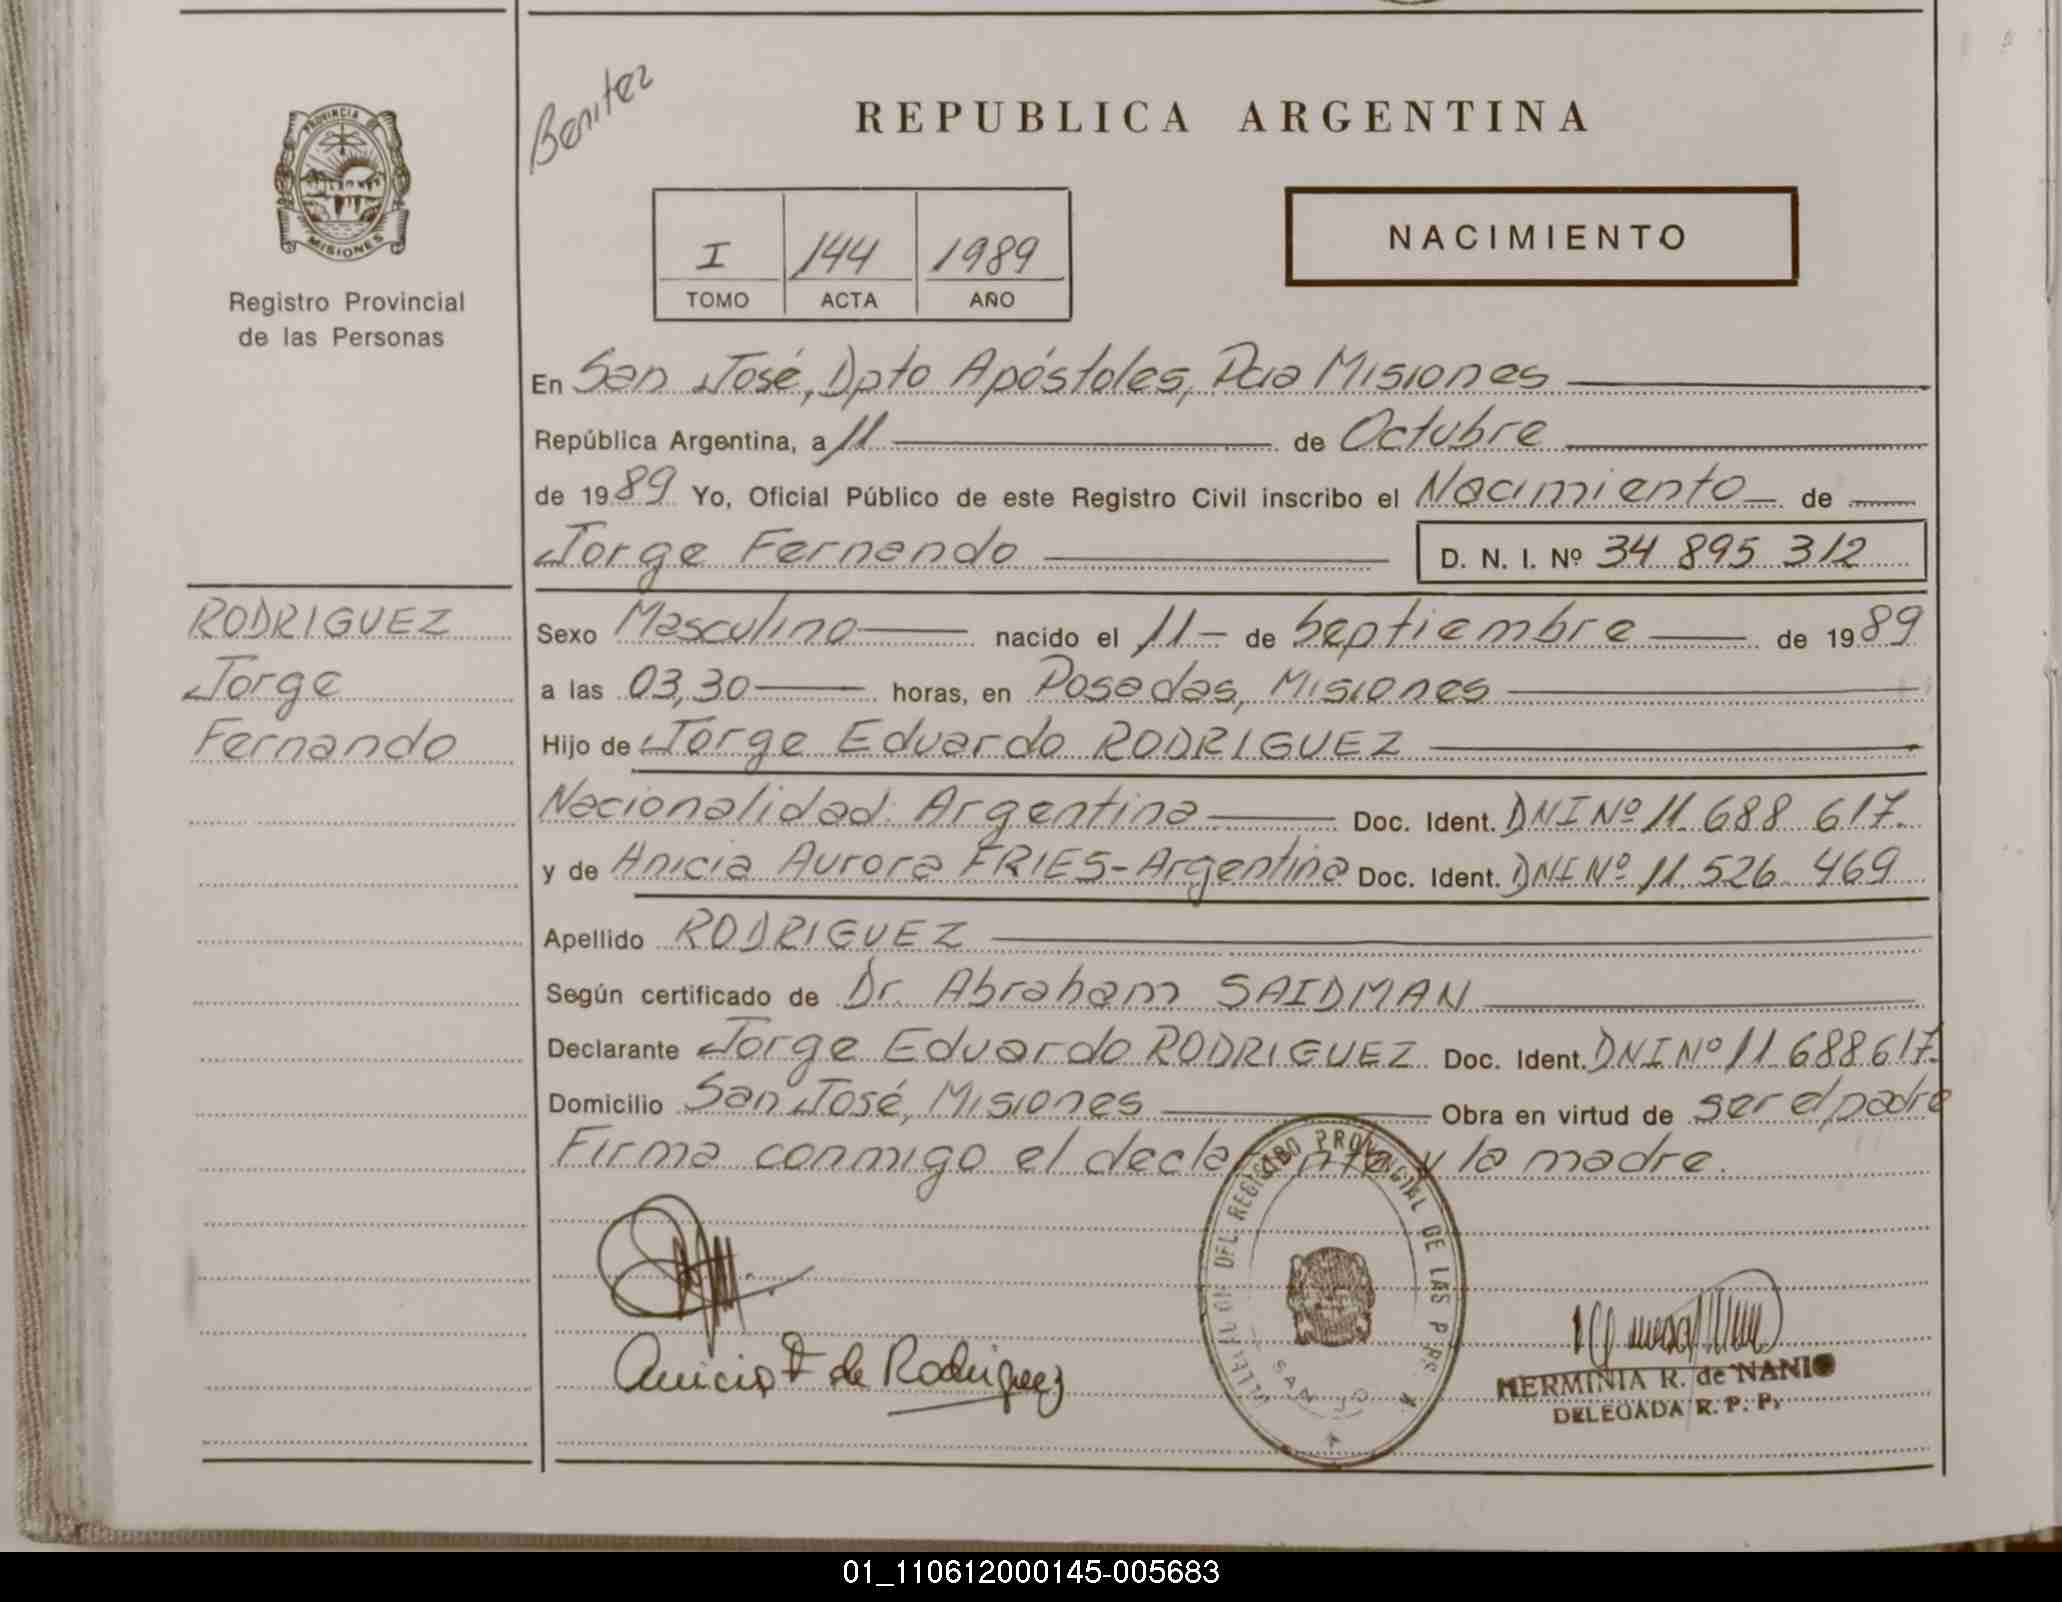 PROVINCIA DE
MISIONES
Registro Provincial
de las Personas
Benitez
REPUBLICA ARGENTINA
I 144 1989
TOMO ACTA AÑO
NACIMIENTO
En San José, Dpto Apóstoles, Pcia Misiones
República Argentina, a 11 de Octubre
de 1989 Yo, Oficial Público de este Registro Civil inscribo el Nacimiento de
Jorge Fernando D. N. I. Nº 34 895 312
RODRIGUEZ
Jorge
Fernando
Sexo Masculino nacido el 11 de Septiembre de 1989
a las 03,30 horas, en Posadas, Misiones
Hijo de Jorge Eduardo RODRIGUEZ
Nacionalidad: Argentina Doc. Ident. DNI Nº 11.688 617.
y de Anicia Aurora FRIES-Argentina Doc. Ident. DNI Nº 11.526 469
Apellido RODRIGUEZ
Según certificado de Dr. Abraham SAIDMAN
Declarante Jorge Eduardo RODRIGUEZ Doc. Ident. DNI Nº 11.688617.
Domicilio San José, Misiones Obra en virtud de ser el padre
Firma conmigo el declarante y la madre.
DEL REGISTRO PROVINCIAL DE LAS PERS
SAN JO
Anicia F de Rodriguez
HERMINIA R. de NANIO
DELEGADA R. P. P.
01_110612000145-005683